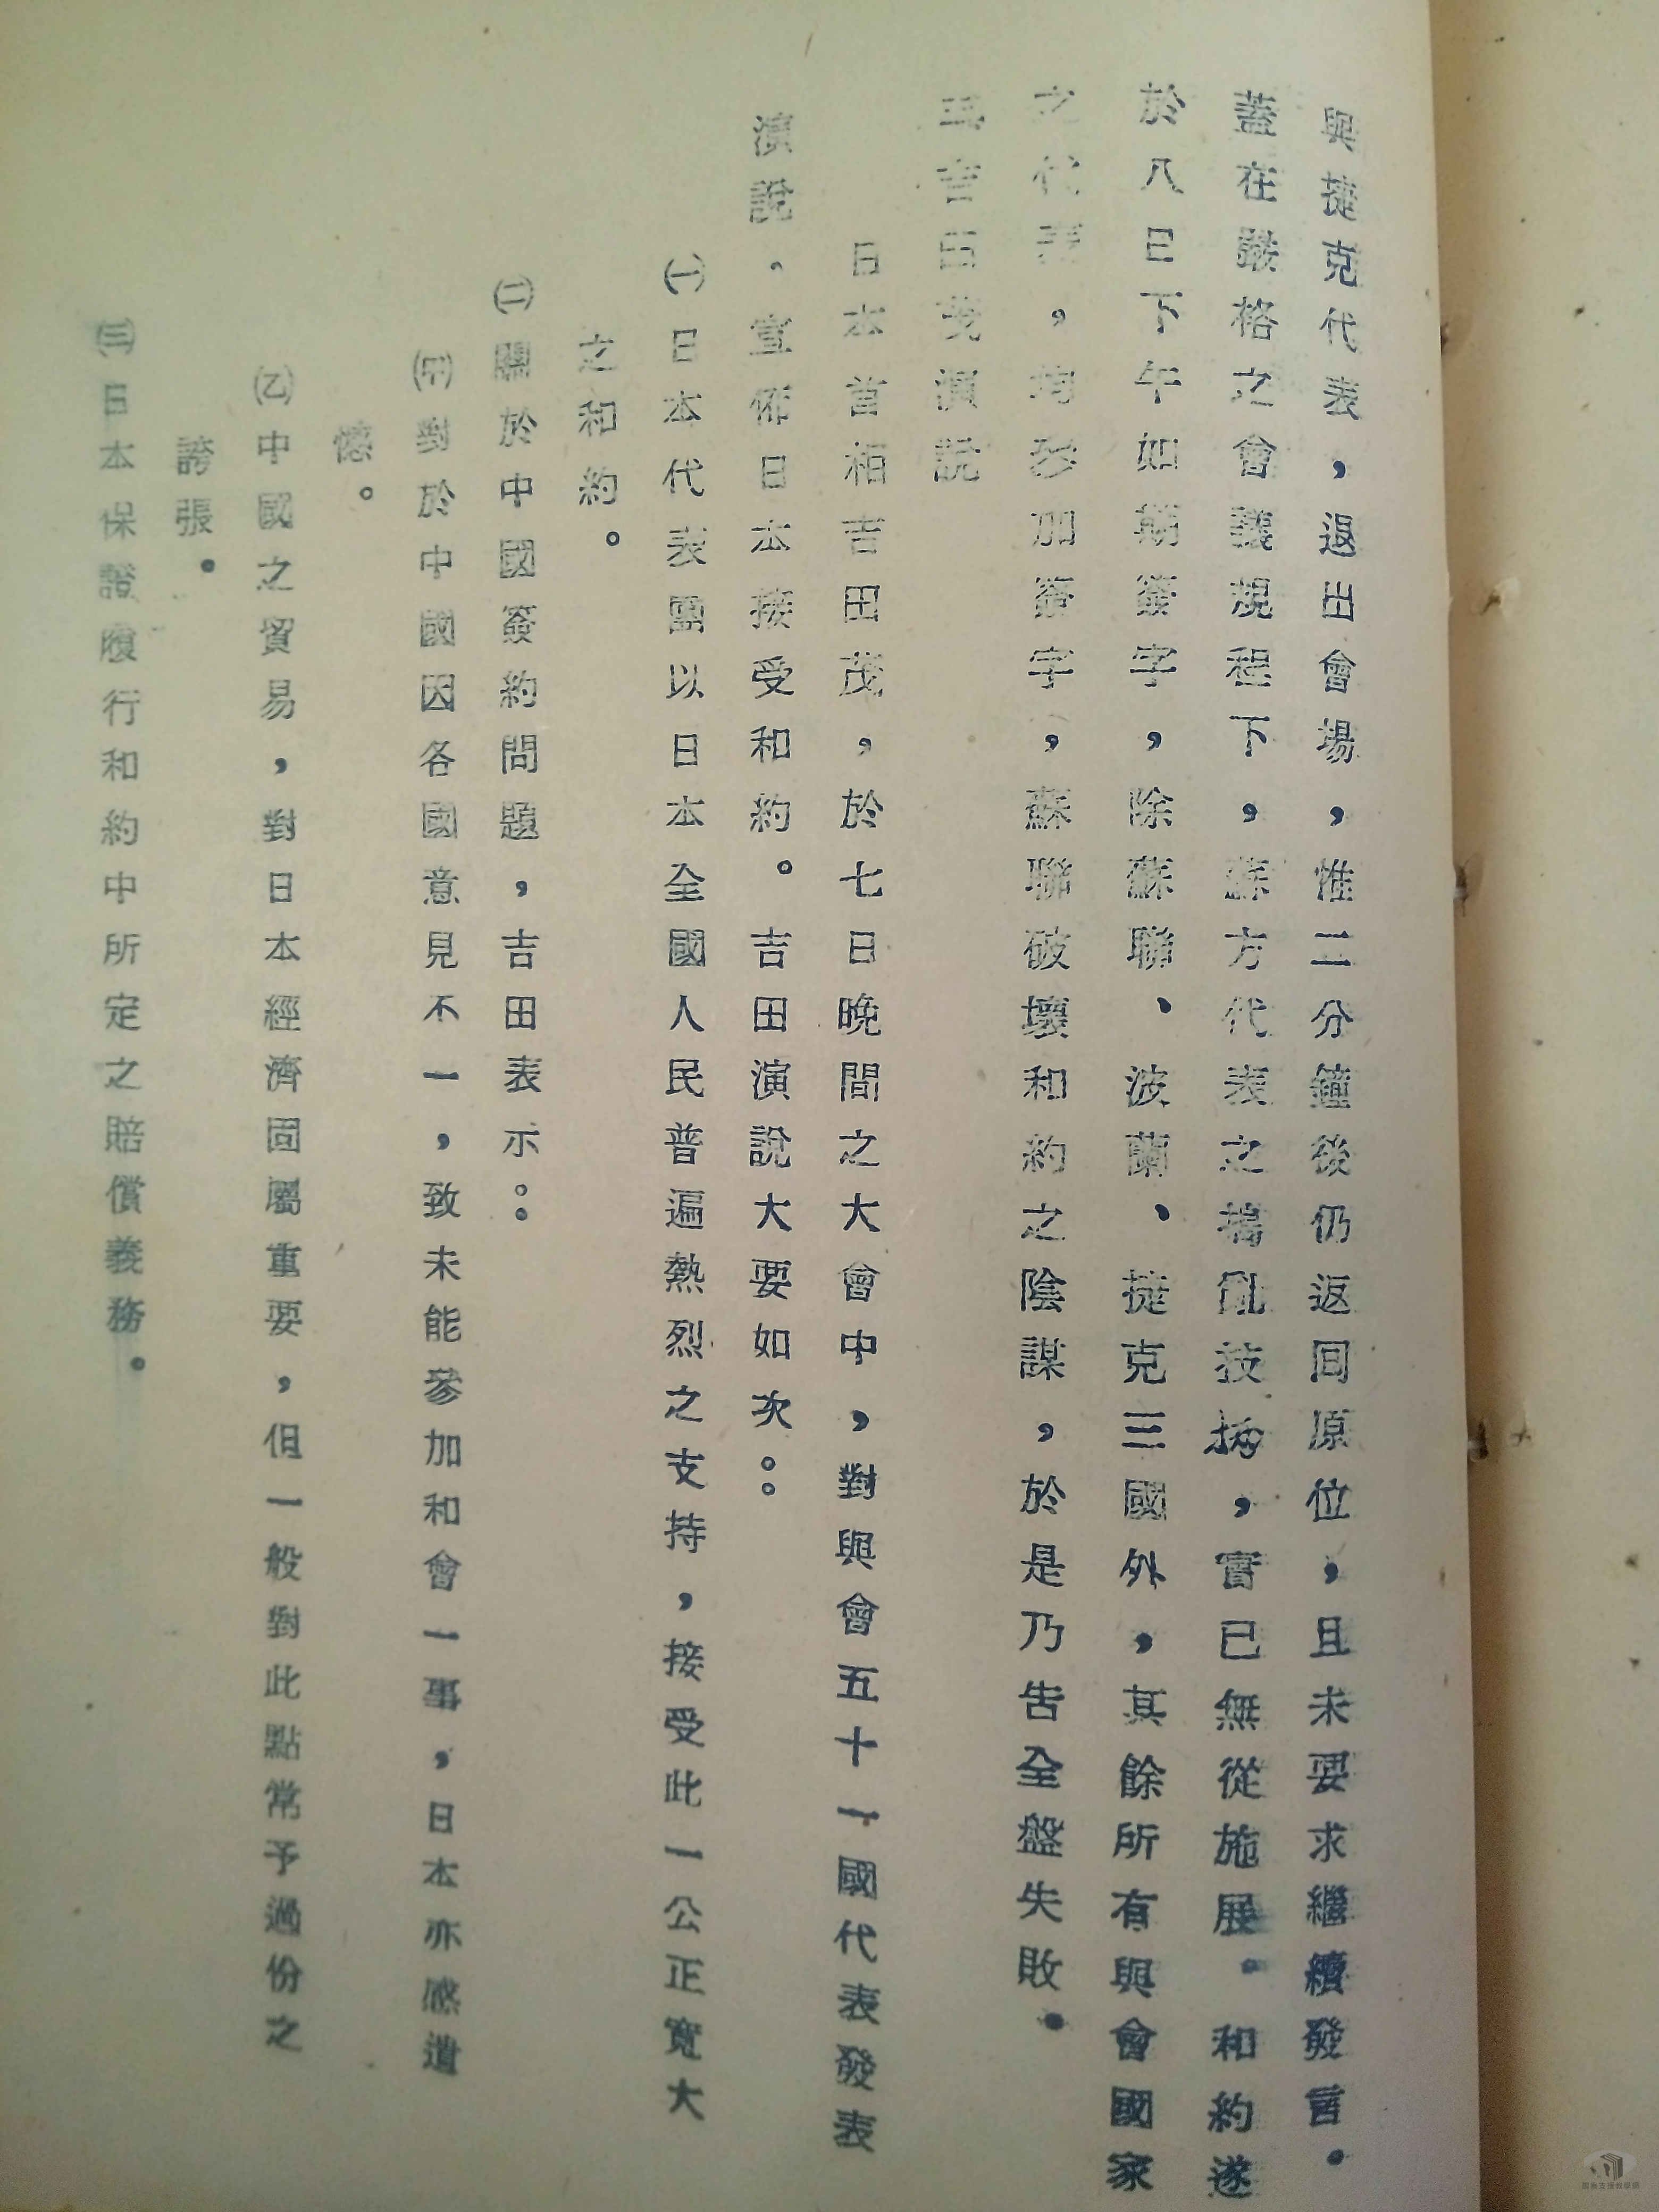 與捷克代表，退出會場，惟二分鐘後仍返回原位，且未要求繼續發言。
蓋在嚴格之會議規程下，蘇方代表之搗亂技倆，實已無從施展。和約遂
於八日下午如期簽字，除蘇聯、波蘭、捷克三國外，其餘所有與會國家
之代表，均參加簽字，蘇聯破壞和約之陰謀，於是乃告全盤失敗。
吉田茂演說
日本首相吉田茂，於七日晚間之大會中，對與會五十一國代表發表
演說。宣佈日本接受和約。吉田演說大要如次：
㈠日本代表團以日本全國人民普遍熱烈之支持，接受此一公正寬大
之和約。
㈡關於中國簽約問題，吉田表示：
㈙對於中國因各國意見不一，致未能參加和會一事，日本亦感遺
憾。
㈚中國之貿易，對日本經濟固屬重要，但一般對此點常予過份之
誇張。
㈢日本保證履行和約中所定之賠償義務。